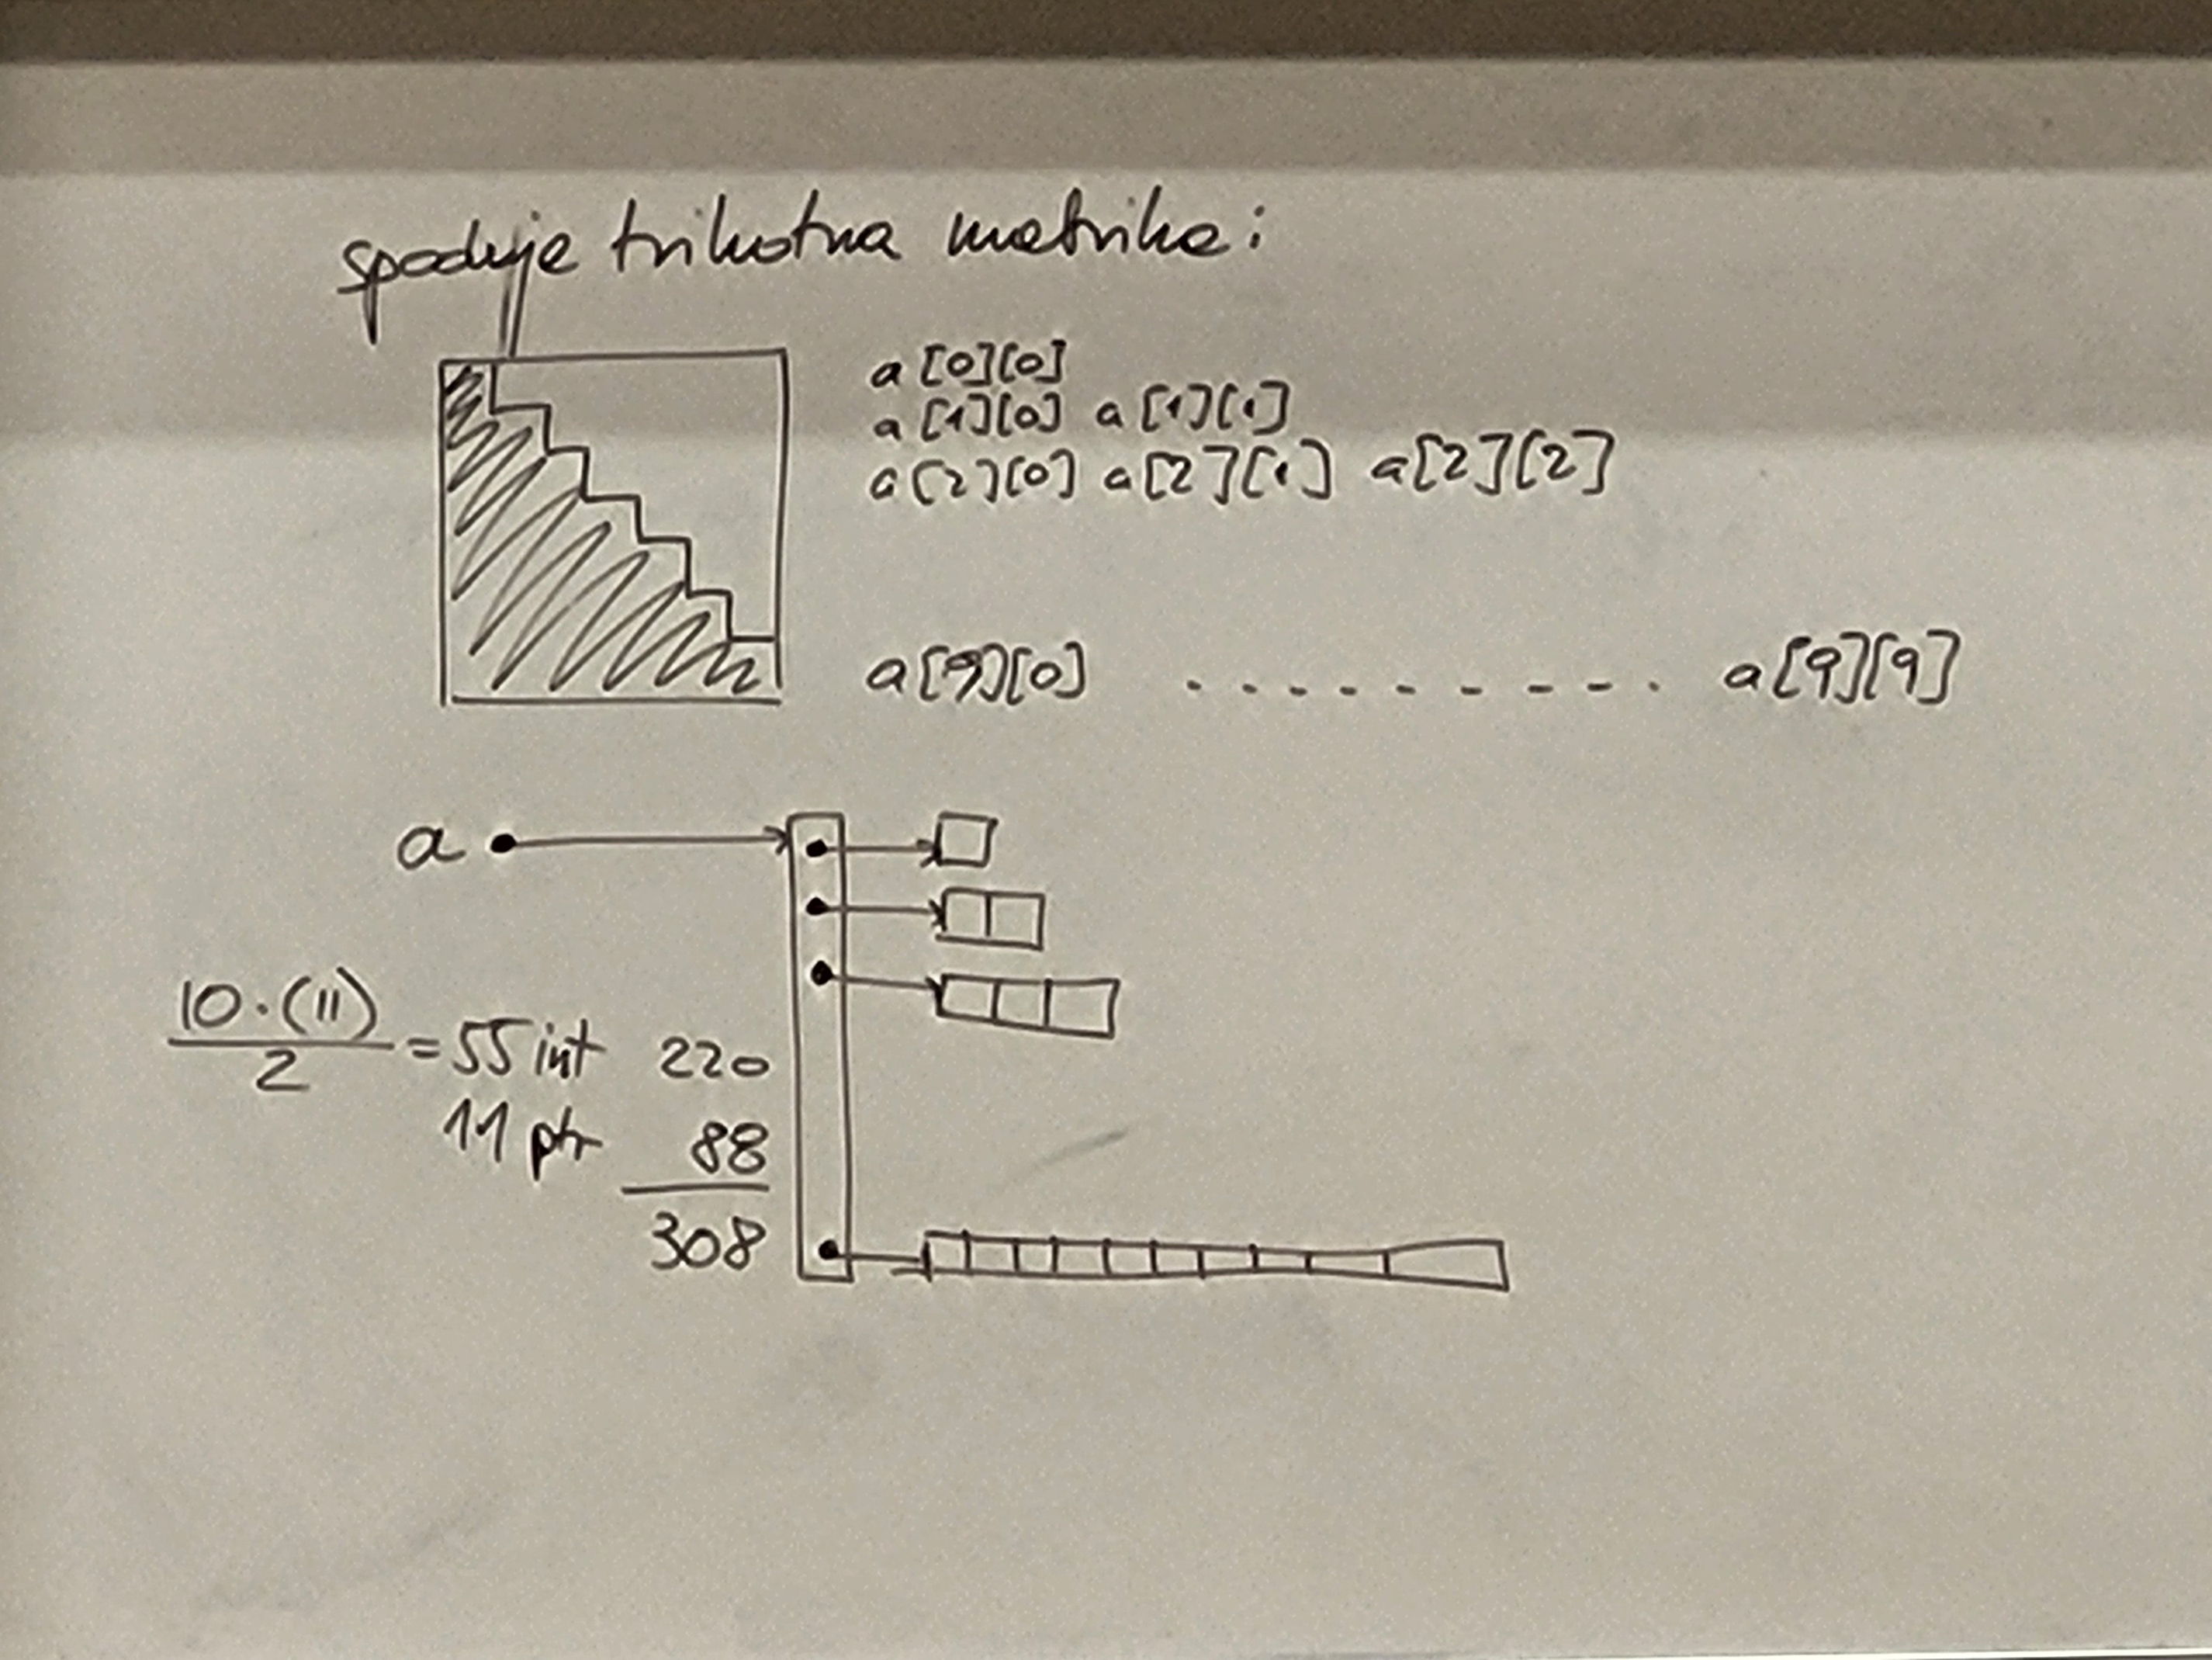 spodnje trikotna matrika:
a[0][0]
a[1][0] a[1][1]
a[2][0] a[2][1] a[2][2]
a[9][0] . . . . . . . . . . a[9][9]
a
10·(11)
2
= 55 int 220
11 ptr 88
308